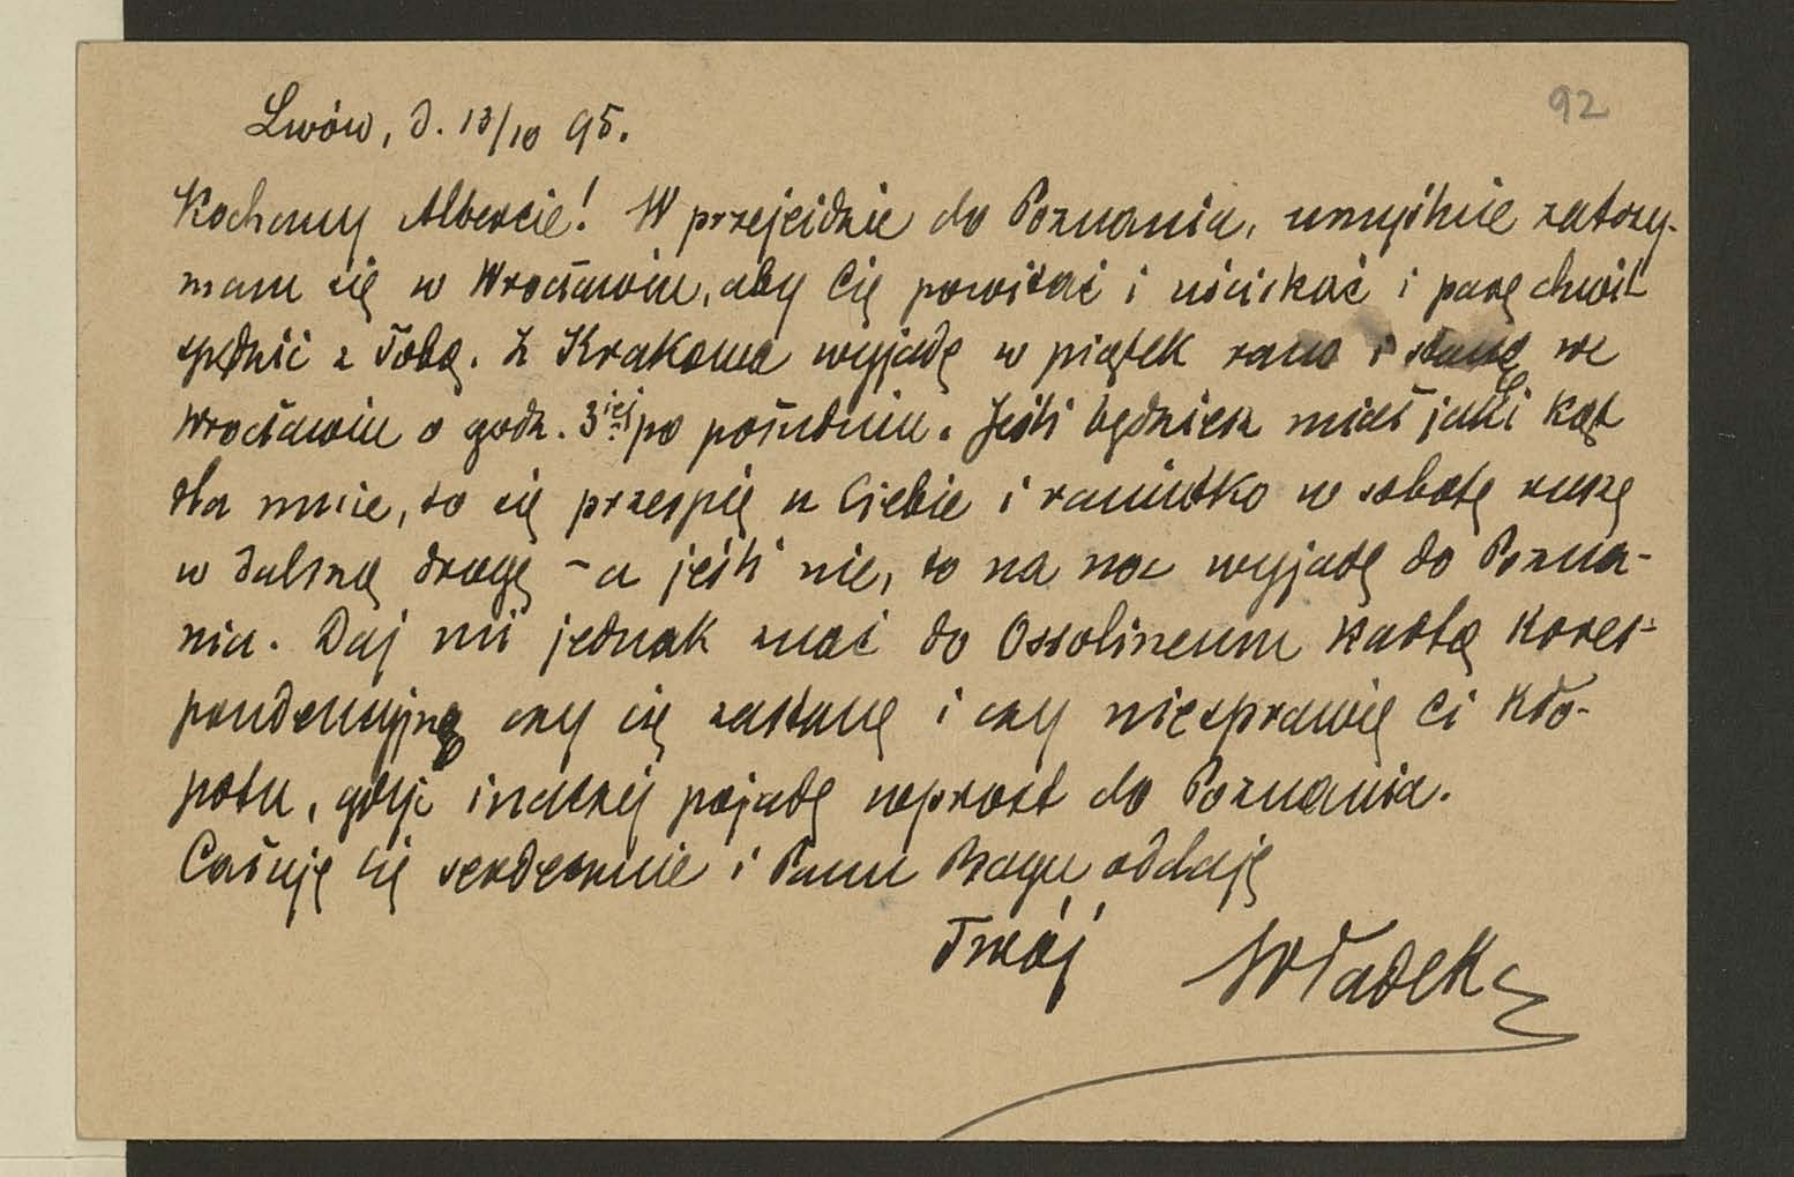 92
Lwów, d. 13/10 95.
Kochany Albercie! W przejeździe do Poznania, umyślnie zatrzy-
mam się w Wrocławiu, aby Cię powitać i uściskać i parę chwil
spędzić z Tobą. Z Krakowa wyjadę w piątek rano i stanę we
Wrocławiu o godz. 3iej po południu. Jeśli będziesz miał jaki kąt
dla mnie, to się prześpię u Ciebie i raniutko w sobotę ruszę
w dalszą drogę – a jeśli nie, to na noc wyjadę do Pozna-
nia. Daj mi jednak znać do Ossolineum kartką kores-
pondencyjną czy cię zastanę i czy niesprawię Ci kło-
potu, gdyż inaczej pojadę wprost do Poznania.
Całuję Cię serdecznie i Panu Bogu oddaję
Twój Władek